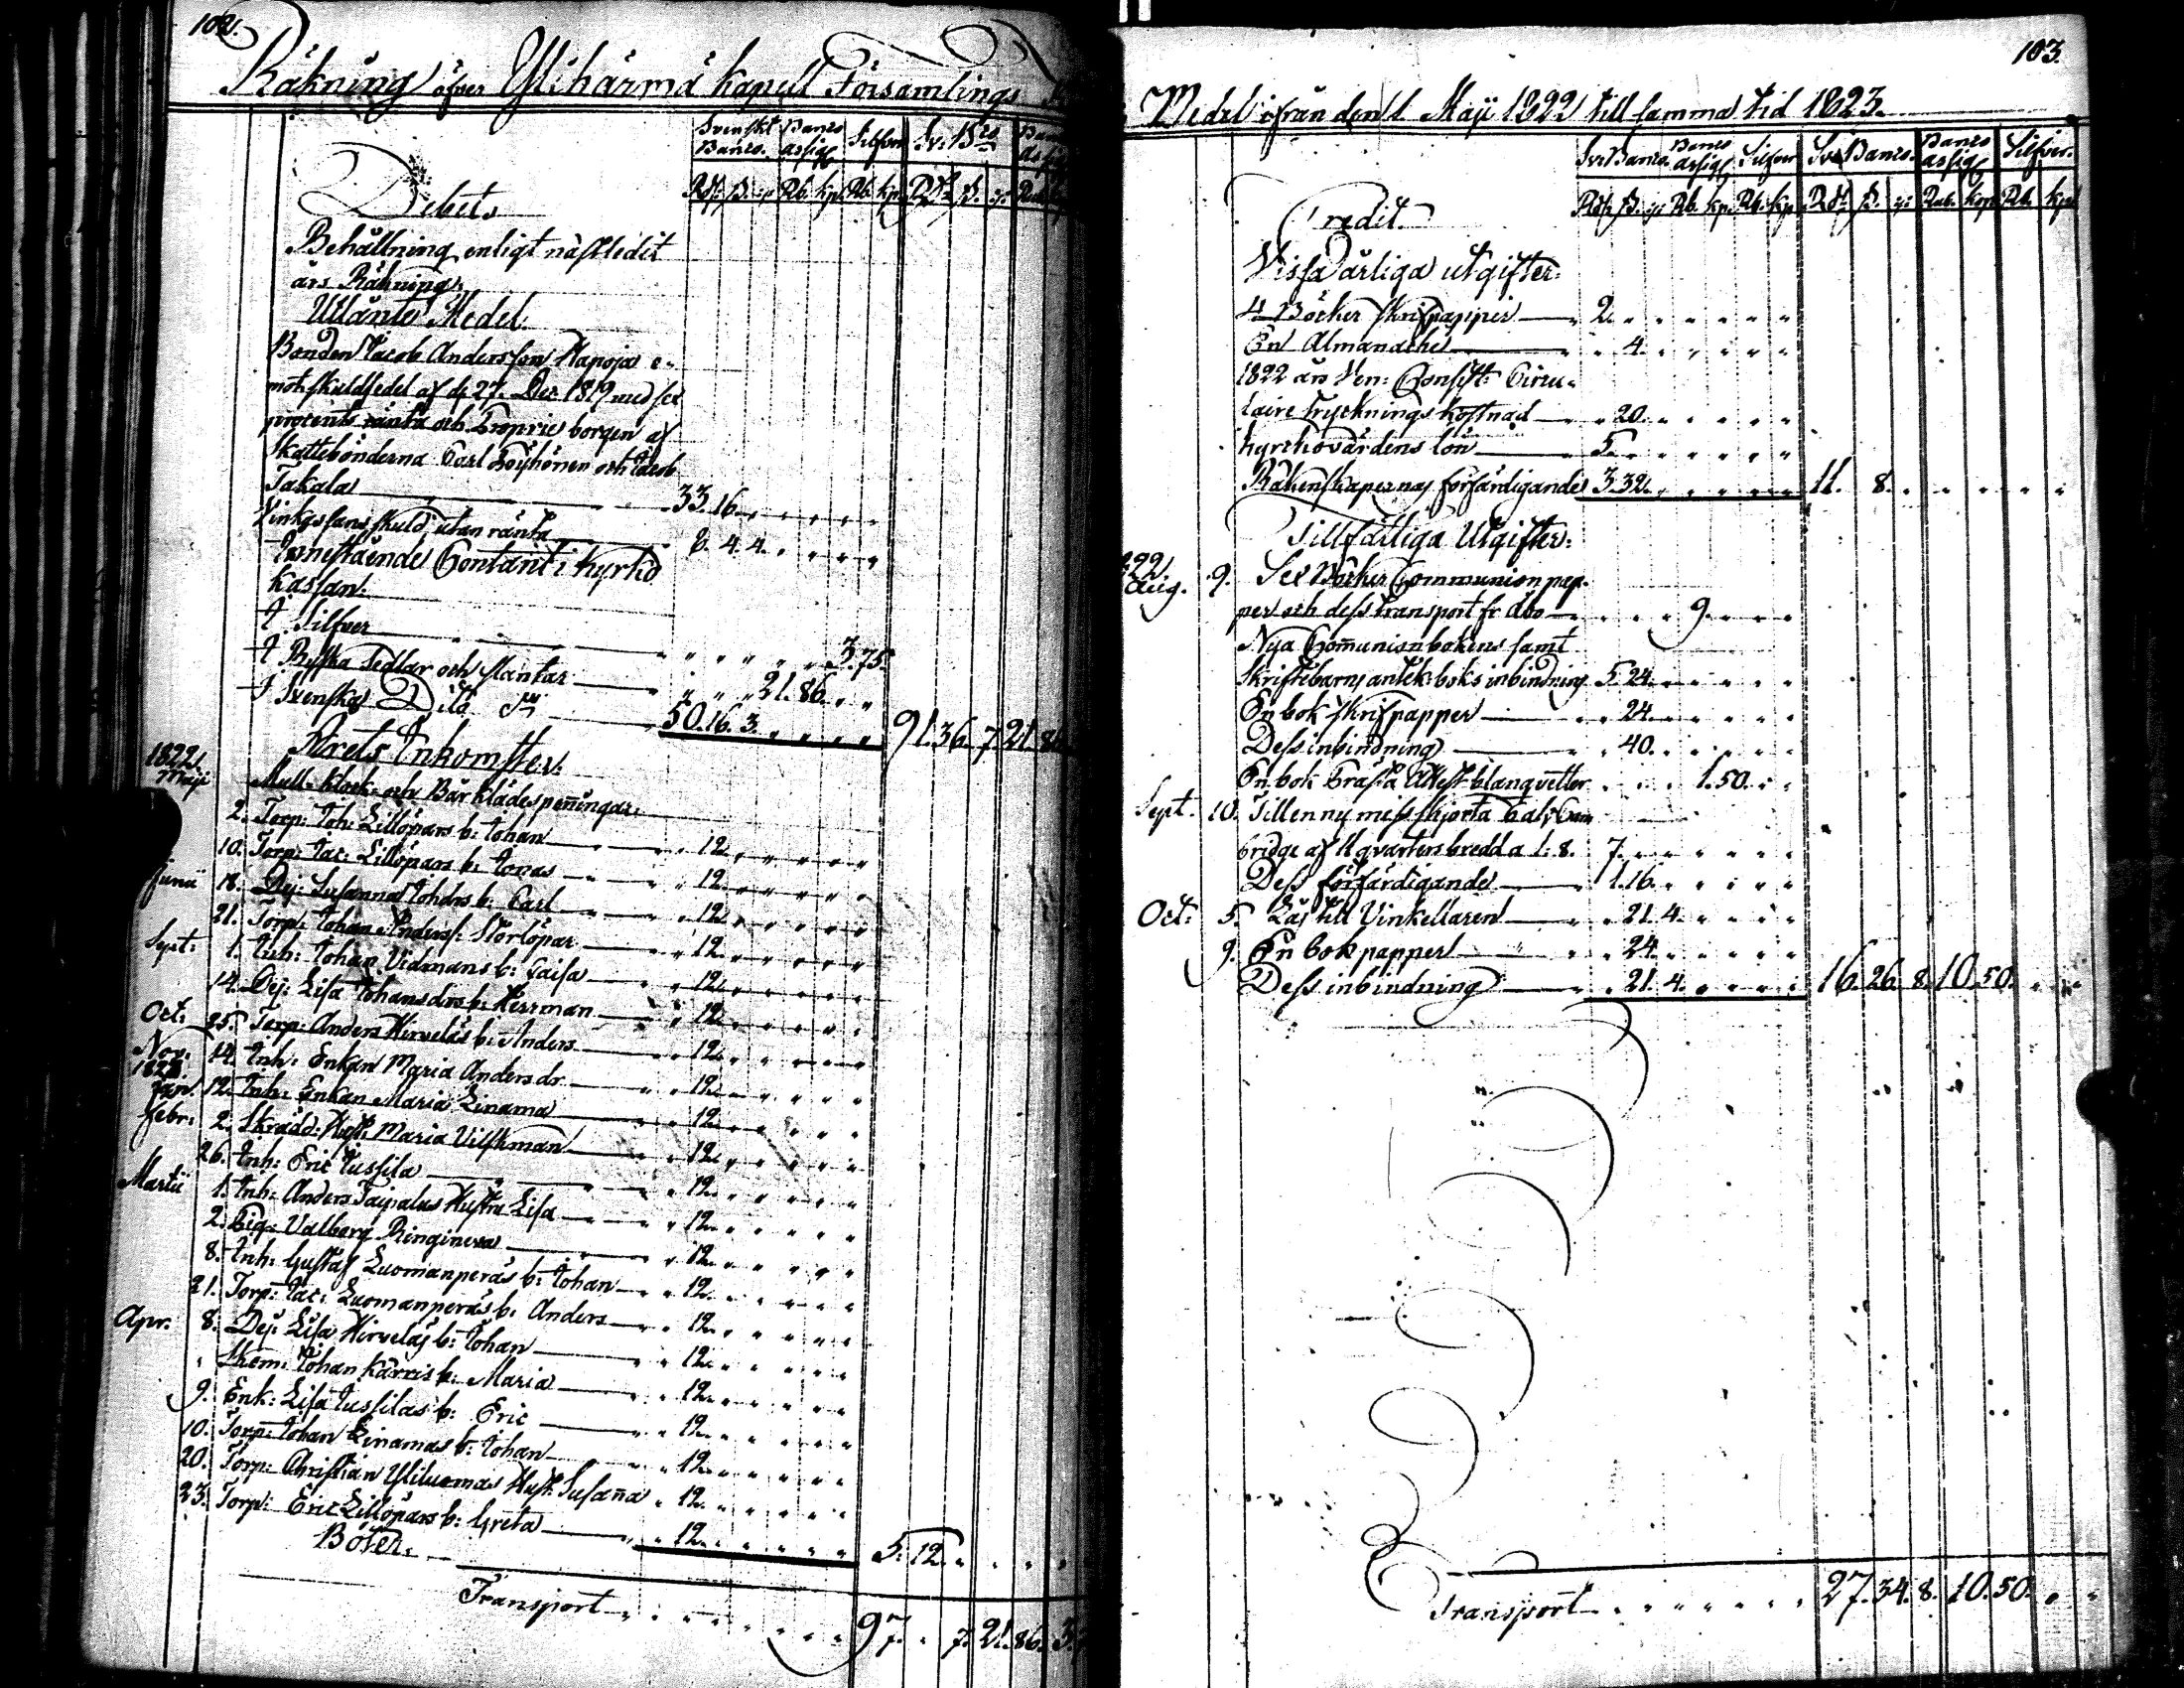 102.
Räkning öfver Ylihärmä Kapell Församlings
Svenskt Banco. Banco assig Silfver Sv: B:co Banco
Rdr ß. rp Rb. kp. Rb. kp. Rdr ß. rp. Rub.
Debet
Behållning enligt nästledit
års Räkning.
Utlänte Medel.
Bonden Jacob Andersson Hanoja e-
mot skuldsedel af d. 27. Dec 1819 med sex
procents ränta och Proprie borgen af
Skattebönderna Carl Köyhönen och Jacob
Takala 33. 16.
Vinkassans skuld utan ränta 8. 4. 4.
Innestående Contant i Kyrko
Kassan.
I Silfver 3. 75.
I Ryska Sedlar och Slantar 21. 86.
I Svenska Dito 50. 16. 3. 91. 36. 7. 21. 86
Årets Inkomster.
1822 Maji Mull- Klock- och Bårklädespeñingar.
2. Torp: Joh: Lillöpars b: Johan 12.
10. Torp: Jac: Lillöpars b: Jonas 12.
Junii 18. Pig: Susanna Johdrs b: Carl 12.
21. Torp: Johan Anderss: Storlöpar 12.
Sept: 1. Inh: Johan Vidmans b: Caisa 12.
14. Pig: Lisa Johansdrs b: Herrman 12.
Oct. 25. Torp: Anders Hirveläs b: Anders 12.
Nov. 14. Inh: Enkan Maria Andersdr 12.
1823. Jan. 12. Inh: Enkan Maria Linama 12.
Febr: 2. Skrädd: Hust: Maria Vilskman 12.
26. Inh: Eric Jussila 12.
Martii 1. Inh: Anders Taipalus Hustru Lisa 12.
2. Pig: Valborg Ringineva 12.
8. Inh: Gustaf Luomanperäs b: Johan 12.
21. Torp: Jac: Luomanperäs b: Anders 12.
Apr. 8. Pig: Lisa Hirveläs b: Johan 12.
" Skom: Johan Kärris b: Maria 12.
9. Enk: Lisa Jussilas b: Eric 12.
10. Torp: Johan Linamas b: Johan 12.
20. Torp: Christian Yliluomas Hust: Susaña 12.
23. Torp: Eric Lillöpars b: Greta 12. 5. 12.
Böter.
Transport 97. " 7. 21. 86. 3.
103.
Medel ifrån den 1 Maji 1822 till samma tid 1823.
Sv: Banco. Banco assig Silfver Sv: Banco. Banco assig Silfver.
Rdr ß. rp Rb. kp. Rb. kp. Rdr ß. rp Rub. kop Rb. kp
Credit.
Vissa årliga utgifter:
4 Böcker skrifpapper 2.
En Almanache 4.
1822 års Ven: Consist: Circu-
laire trycknings kostnad 20.
Kyrkovärdens lön 5.
Räkenskapernas förfärdigande 3. 32. 11. 8.
Tillfälliga Utgifter:
1822 Aug. 9. Sex Böcker Communion pap-
per och dess transport fr. Åbo 9.
Nya Com̄unionbokens samt
Skriftebarns antek: boks inbindning 5. 24.
En bok skrifpapper 24.
Dess inbindning 40.
En bok Präste Attest blanqvetter 1. 50.
Sept. 10. Till en ny mess skjorta Cam
bridge af 11 qvarters bredd a 1: 8. 7.
Dess förfärdigande 1. 16.
Oct: 5. Lås till Vinkellaren 21. 4.
9. En bok papper 24.
Dess inbindning 21. 4. 16. 26. 8. 10. 50.
Transport 27. 34. 8. 10. 50.